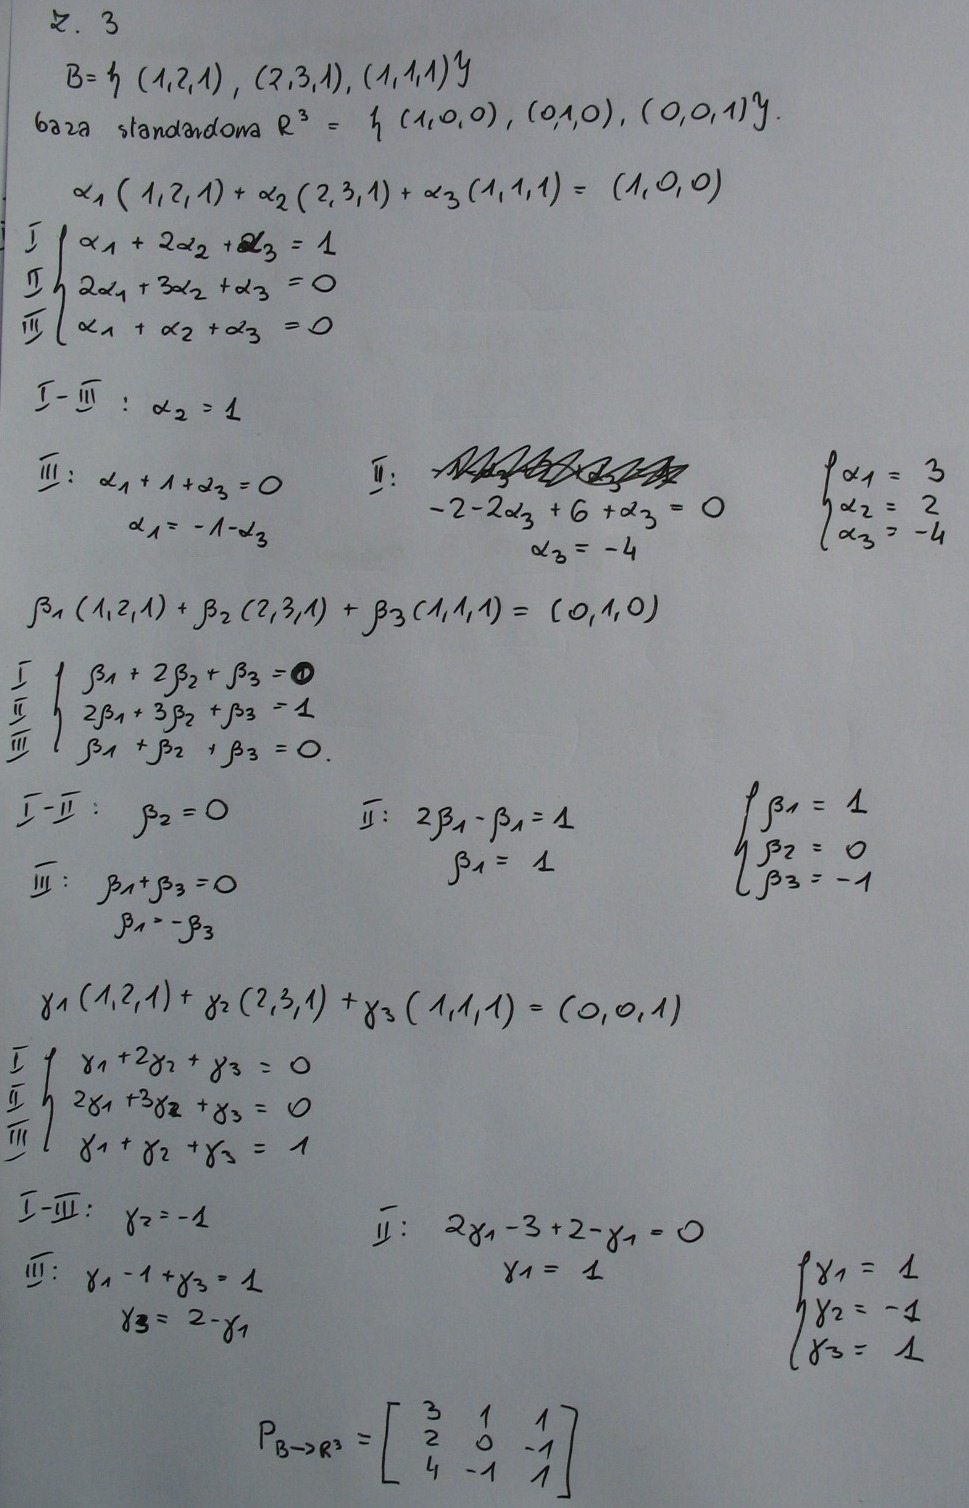 z. 3
B = { (1,2,1), (2,3,1), (1,1,1)}
baza standardowa R³ = { (1,0,0), (0,1,0), (0,0,1)}.
α1 (1,2,1) + α2 (2,3,1) + α3 (1,1,1) = (1,0,0)
I α1 + 2α2 + α3 = 1
II 2α1 + 3α2 + α3 = 0
III α1 + α2 + α3 = 0
I - III : α2 = 1
III: α1 + 1 + α3 = 0 II: -2 - 2α3 + 6 + α3 = 0 α1 = 3
α1 = -1 - α3 α3 = -4 α2 = 2
α3 = -4
β1 (1,2,1) + β2 (2,3,1) + β3 (1,1,1) = (0,1,0)
I β1 + 2β2 + β3 = 0
II 2β1 + 3β2 + β3 = 1
III β1 + β2 + β3 = 0.
I - II : β2 = 0 II: 2β1 - β1 = 1 β1 = 1
β1 = 1 β2 = 0
III : β1 + β3 = 0 β3 = -1
β1 = -β3
γ1 (1,2,1) + γ2 (2,3,1) + γ3 (1,1,1) = (0,0,1)
I γ1 + 2γ2 + γ3 = 0
II 2γ1 + 3γ2 + γ3 = 0
III γ1 + γ2 + γ3 = 1
I - III: γ2 = -1 II: 2γ1 - 3 + 2 - γ1 = 0
III: γ1 - 1 + γ3 = 1 γ1 = 1 γ1 = 1
γ3 = 2 - γ1 γ2 = -1
γ3 = 1
P B→R³ = [ 3 1 1
2 0 -1
4 -1 1 ]